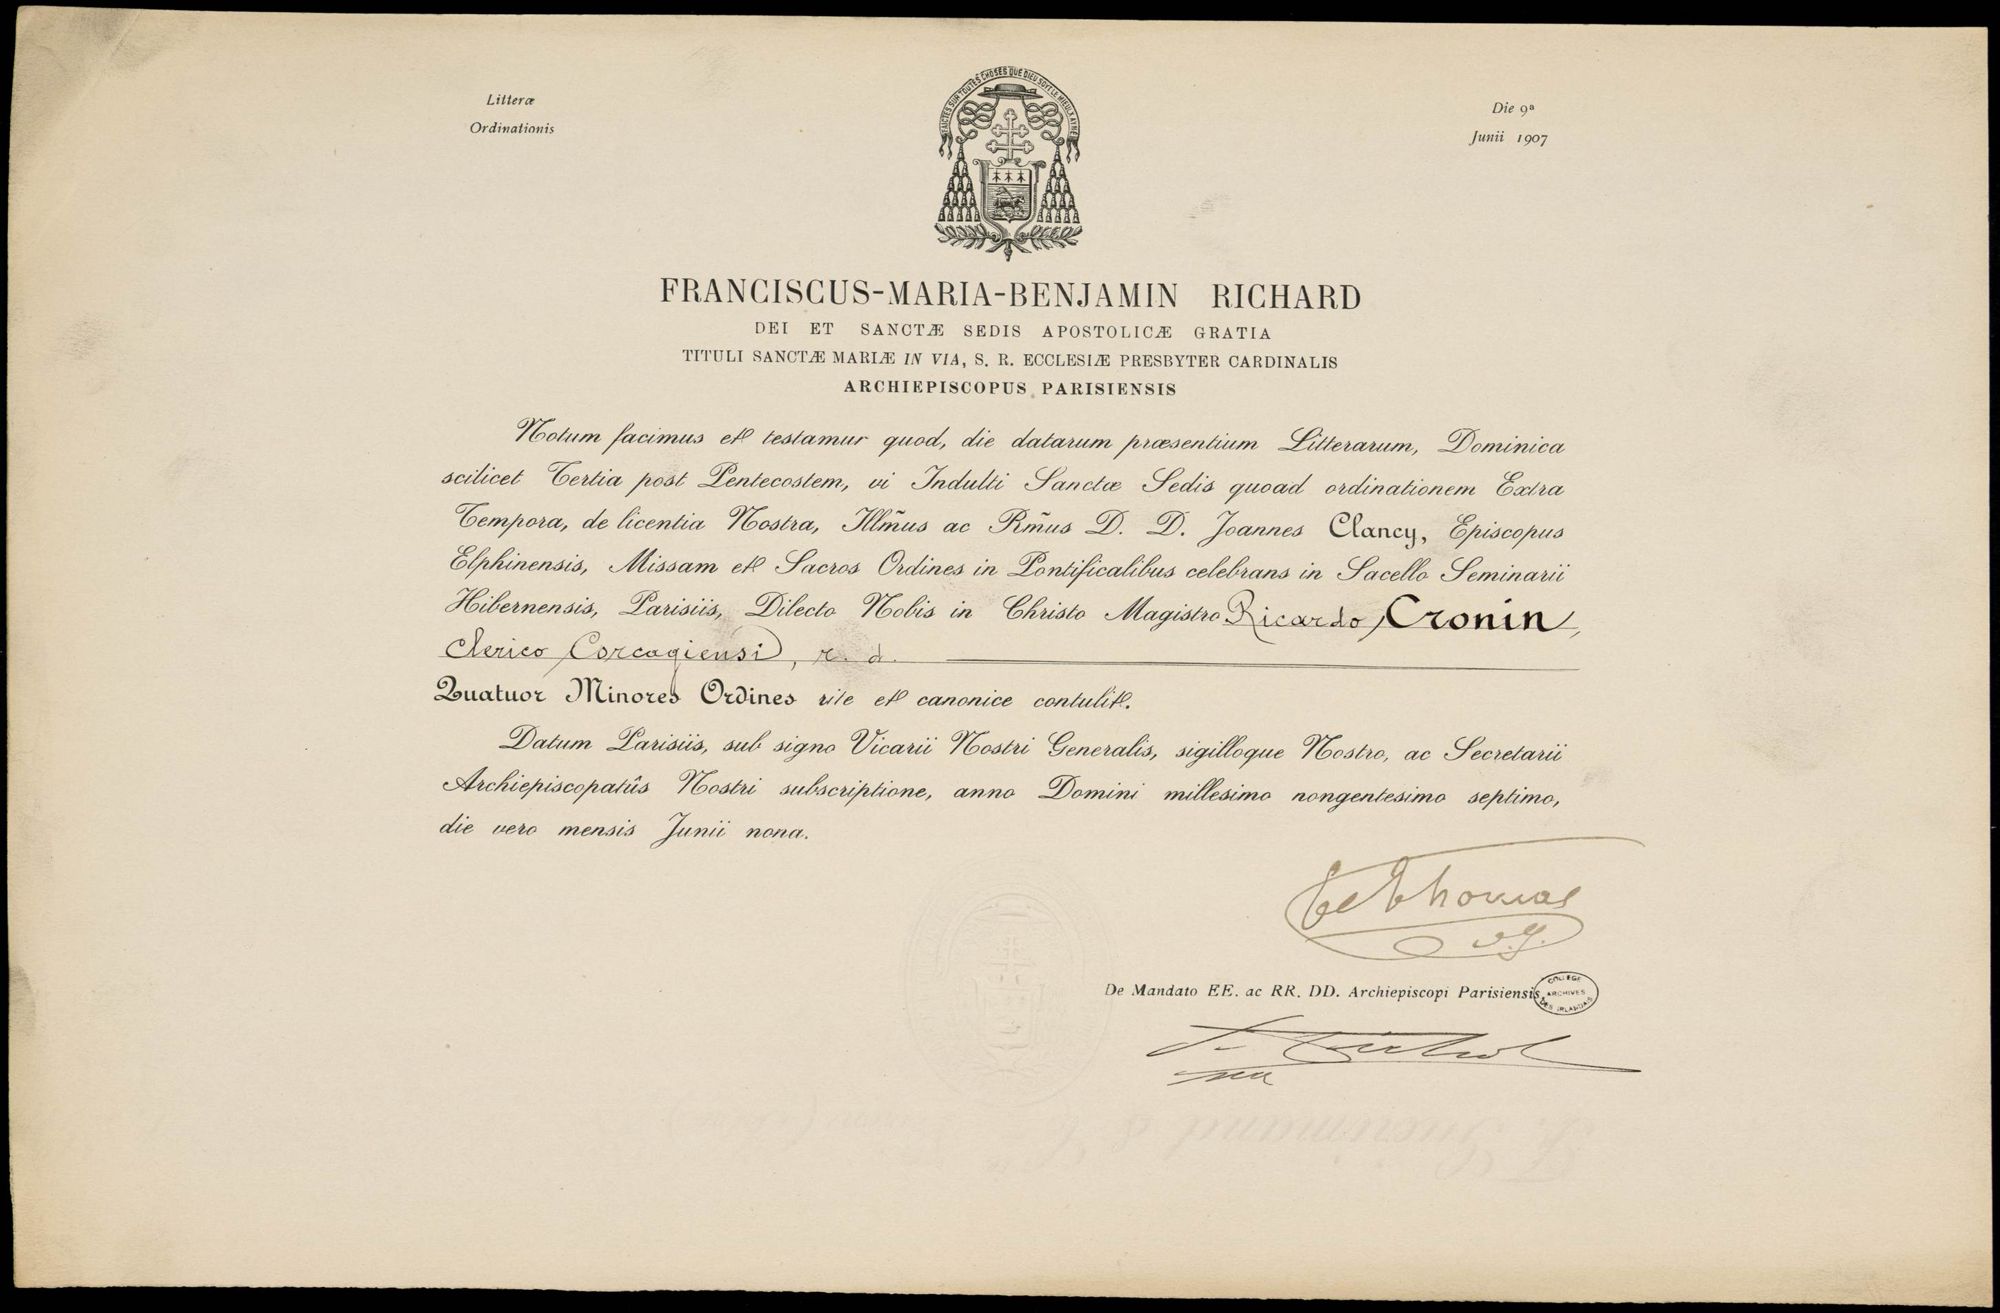 Litteræ
Ordinationis
Die 9ª
Junii 1907
SUR TOUTES CHOSES QUE DIEU SOYT LE MIEULX AYMÉ
FRANCISCUS-MARIA-BENJAMIN RICHARD
DEI ET SANCTÆ SEDIS APOSTOLICÆ GRATIA
TITULI SANCTÆ MARIÆ IN VIA, S. R. ECCLESIÆ PRESBYTER CARDINALIS
ARCHIEPISCOPUS PARISIENSIS
Notum facimus et testamur quod, die datarum præsentium Litterarum, Dominica
scilicet Tertia post Pentecostem, vi Indulti Sanctæ Sedis quoad ordinationem Extra
Tempora, de licentia Nostra, Illm̃us ac Rm̃us D. D. Joannes Clancy, Episcopus
Elphinensis, Missam et Sacros Ordines in Pontificalibus celebrans in Sacello Seminarii
Hibernensis, Parisiis, Dilecto Nobis in Christo Magistro Ricardo Cronin,
Clerico Corcagiensi, r. d.
Quatuor Minores Ordines rite et canonice contulit.
Datum Parisiis, sub signo Vicarii Nostri Generalis, sigilloque Nostro, ac Secretarii
Archiepiscopatûs Nostri subscriptione, anno Domini millesimo nongentesimo septimo,
die vero mensis Junii nona.
Thomas
v.g.
De Mandato EE. ac RR. DD. Archiepiscopi Parisiensis
COLLEGE
ARCHIVES
DES IRLANDAIS